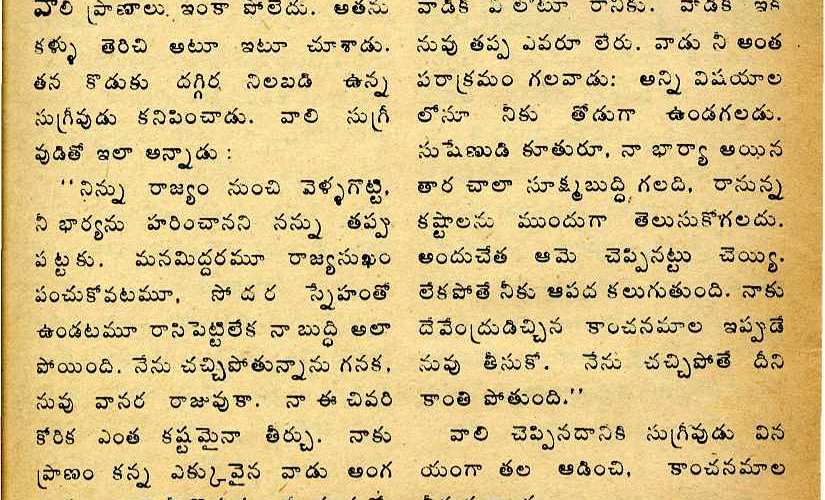 వాలి ప్రాణాలు ఇంకా పోలేదు. అతను
కళ్ళు తెరిచి అటూ ఇటూ చూశాడు.
తన కొడుకు దగ్గిర నిలబడి ఉన్న
సుగ్రీవుడు కనిపించాడు. వాలి సుగ్రీ
వుడితో ఇలా అన్నాడు :
"నిన్ను రాజ్యం నుంచి వెళ్ళగొట్టి,
నీ భార్యను హరించానని నన్ను తప్పు
పట్టకు. మనమిద్దరమూ రాజ్యసుఖం
పంచుకోవటమూ, సోదర స్నేహంతో
ఉండటమూ రాసిపెట్టిలేక నా బుద్ధి అలా
పోయింది. నేను చచ్చిపోతున్నాను గనక,
నువు వానర రాజువుకా. నా ఈ చివరి
కోరిక ఎంత కష్టమైనా తీర్చు. నాకు
ప్రాణం కన్న ఎక్కువైన వాడు అంగ
వాడికి ఏ లోటూ రానీకు. వాడికి ఇక
నువు తప్ప ఎవరూ లేరు. వాడు నీ అంత
పరాక్రమం గలవాడు: అన్ని విషయాల
లోనూ నీకు తోడుగా ఉండగలడు.
సుషేణుడి కూతురూ, నా భార్యా అయిన
తార చాలా సూక్ష్మబుద్ధి గలది, రానున్న
కష్టాలను ముందుగా తెలుసుకోగలదు.
అందుచేత ఆమె చెప్పినట్టు చెయ్యి.
లేకపోతే నీకు ఆపద కలుగుతుంది. నాకు
దేవేంద్రుడిచ్చిన కాంచనమాల ఇప్పుడే
నువు తీసుకో. నేను చచ్చిపోతే దీని
కాంతి పోతుంది."
వాలి చెప్పినదానికి సుగ్రీవుడు విన
యంగా తల ఆడించి, కాంచనమాల